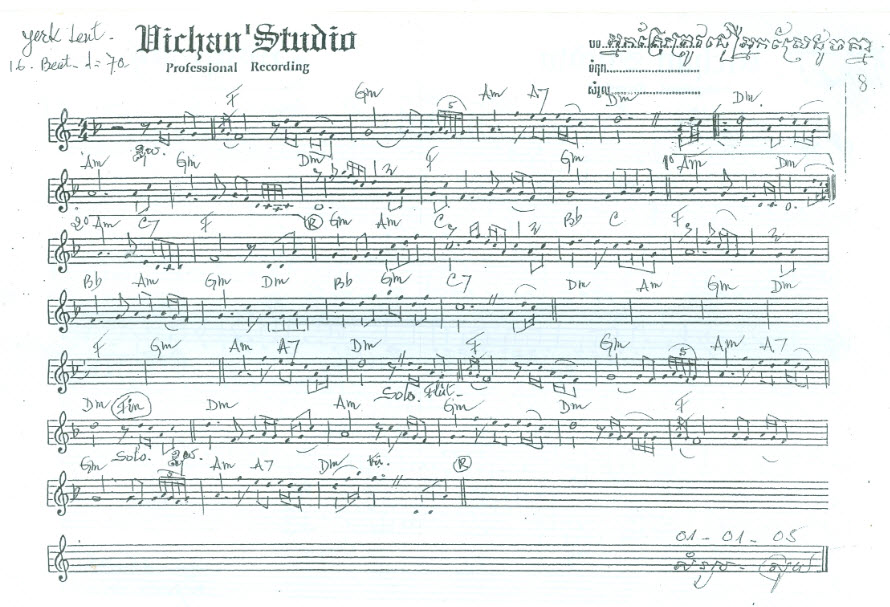 yerk Lent.
16. Beat ♩= 70
Vichan'Studio
Professional Recording
បទ..អ្នកស្រែត្រូវជឿអ្នកស្រែដូចគ្នា
ទំនុក..............................
សំរួល..............................
8
F Gm Am A7 Dm Dm.
5
Am Gm Dm F Gm 1º Am Dm
2º Am C7 F R Gm Am C7 Bb C F
Bb Am Gm Dm Bb Gm C7 Dm Am Gm Dm
F Gm Am A7 Dm F Gm Am A7
5
Solo. Flut.
Dm Fin Dm Am Gm Dm F
Solo.
Gm Am A7 Dm R
01 - 01 - 05